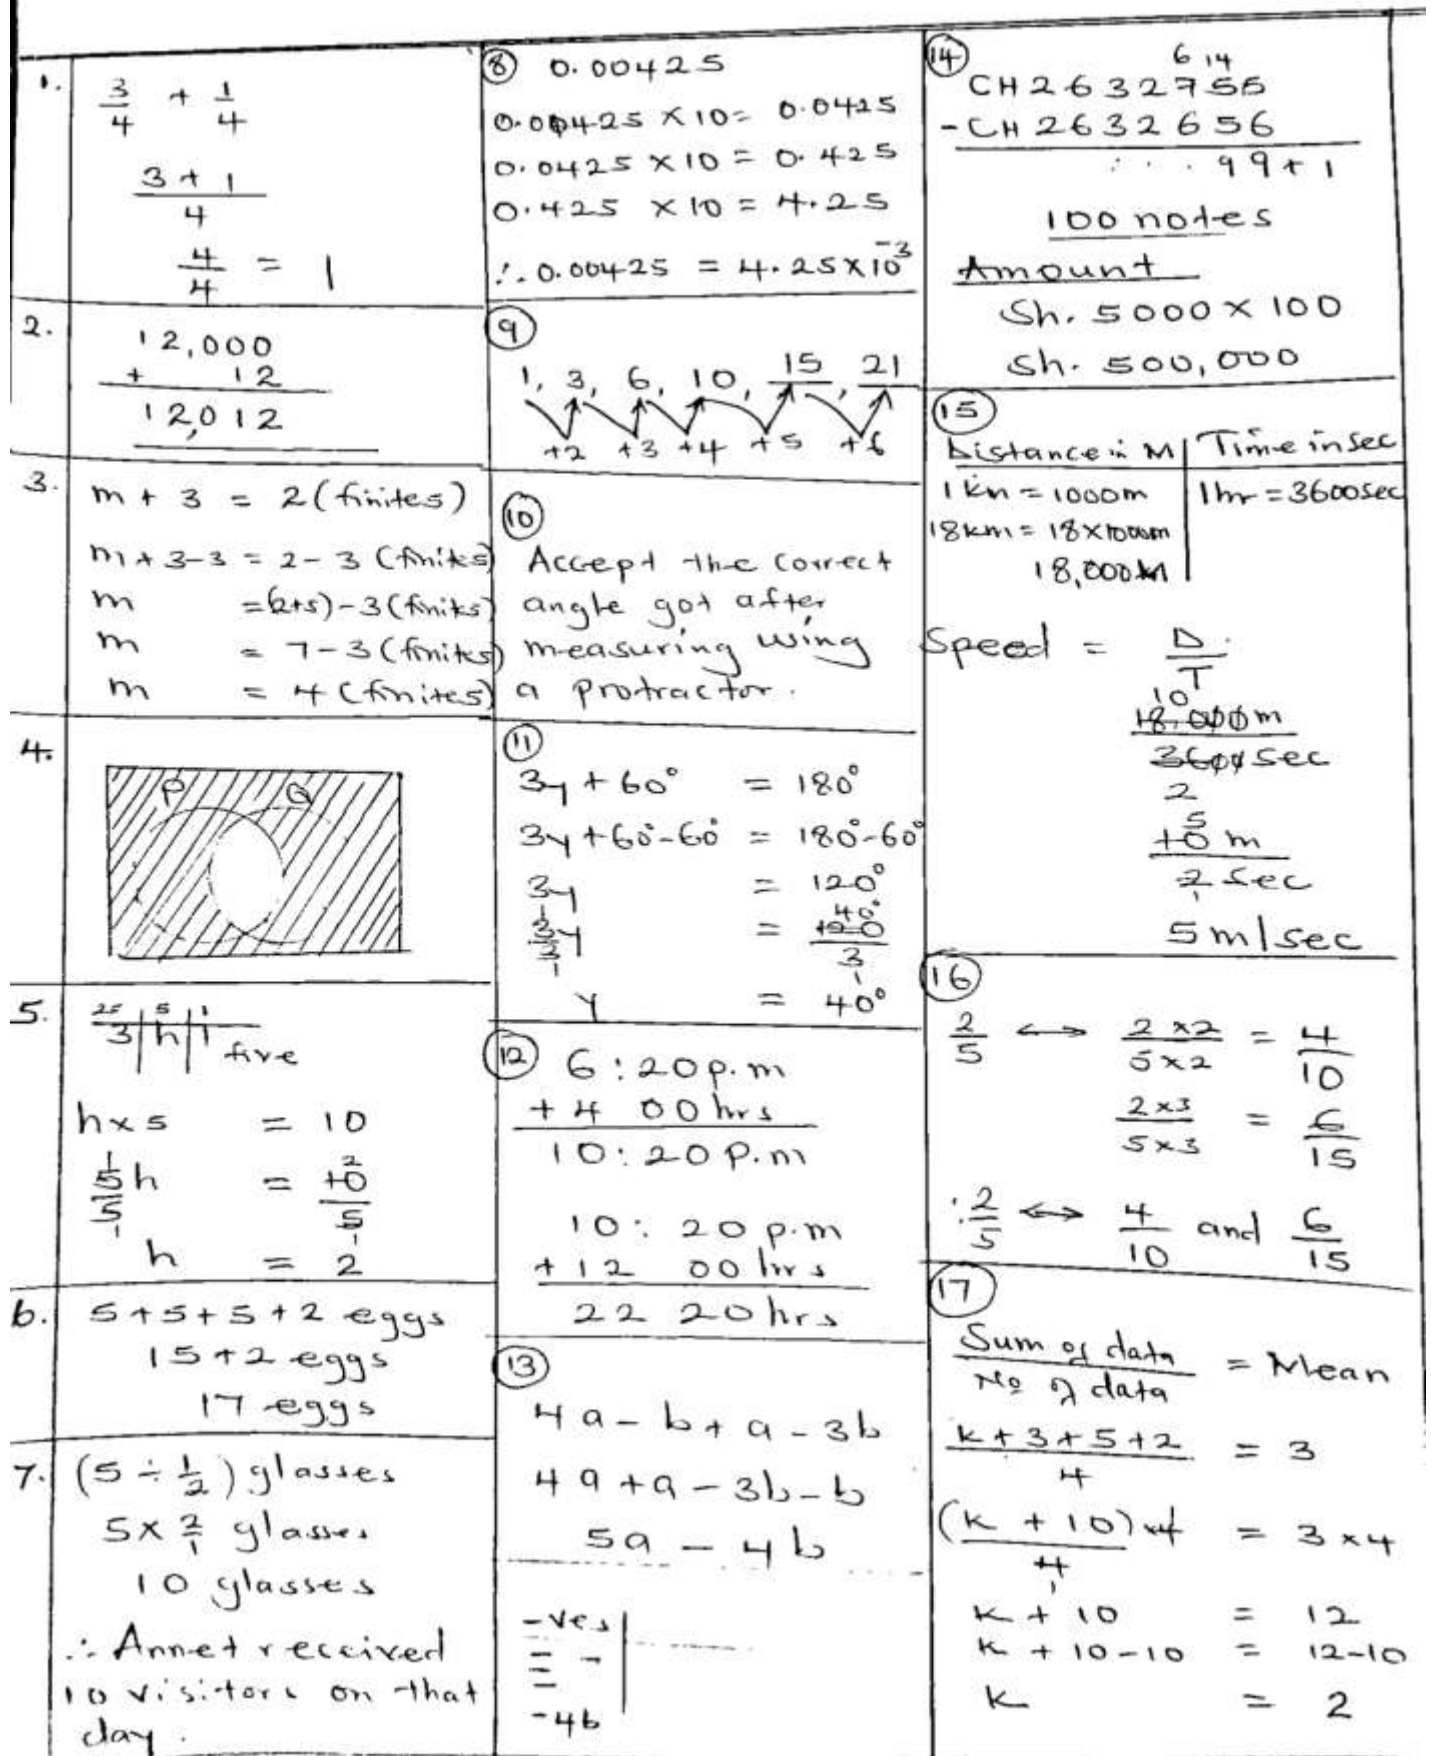 1.
3/4 + 1/4
3 + 1 / 4
4/4 = 1
2.
12,000
+ 12
12,012
3.
m + 3 = 2 (finites)
m + 3 - 3 = 2 - 3 (finites)
m = (2+5) - 3 (finites)
m = 7 - 3 (finites)
m = 4 (finites)
4.
P Q
5.
25 | 5 | 1
3 | h | 1 five
h x 5 = 10
5h/5 = 10/5
h = 2
6.
5 + 5 + 5 + 2 eggs
15 + 2 eggs
17 eggs
7.
(5 ÷ 1/2) glasses
5 x 2/1 glasses
10 glasses
∴ Annet received
10 visitors on that
day.
8
0.00425
0.00425 x 10 = 0.0425
0.0425 x 10 = 0.425
0.425 x 10 = 4.25
∴ 0.00425 = 4.25 x 10⁻³
9
1, 3, 6, 10, 15, 21
+2 +3 +4 +5 +6
10
Accept the correct
angle got after
measuring using
a protractor.
11
3y + 60° = 180°
3y + 60° - 60° = 180° - 60°
3y = 120°
3y/3 = 120°/3
y = 40°
12
6:20 p.m
+ 4 00 hrs
10:20 p.m
10: 20 p.m
+ 12 00 hrs
22 20 hrs
13
4a - b + a - 3b
4a + a - 3b - b
5a - 4b
-ves
-4b
14
6 14
CH 2632755
- CH 2632656
99 + 1
100 notes
Amount
Sh. 5000 x 100
Sh. 500,000
15
Distance in M | Time in sec
1 km = 1000m | 1hr = 3600sec
18km = 18 x 1000m
18,000m
Speed = D/T
18,000m / 3600sec
10 m / 2 sec
5 m/sec
16
2/5 ↔ 2 x 2 / 5 x 2 = 4/10
2 x 3 / 5 x 3 = 6/15
∴ 2/5 ↔ 4/10 and 6/15
17
Sum of data / No of data = Mean
k + 3 + 5 + 2 / 4 = 3
(k + 10) x 4 / 4 = 3 x 4
k + 10 = 12
k + 10 - 10 = 12 - 10
k = 2